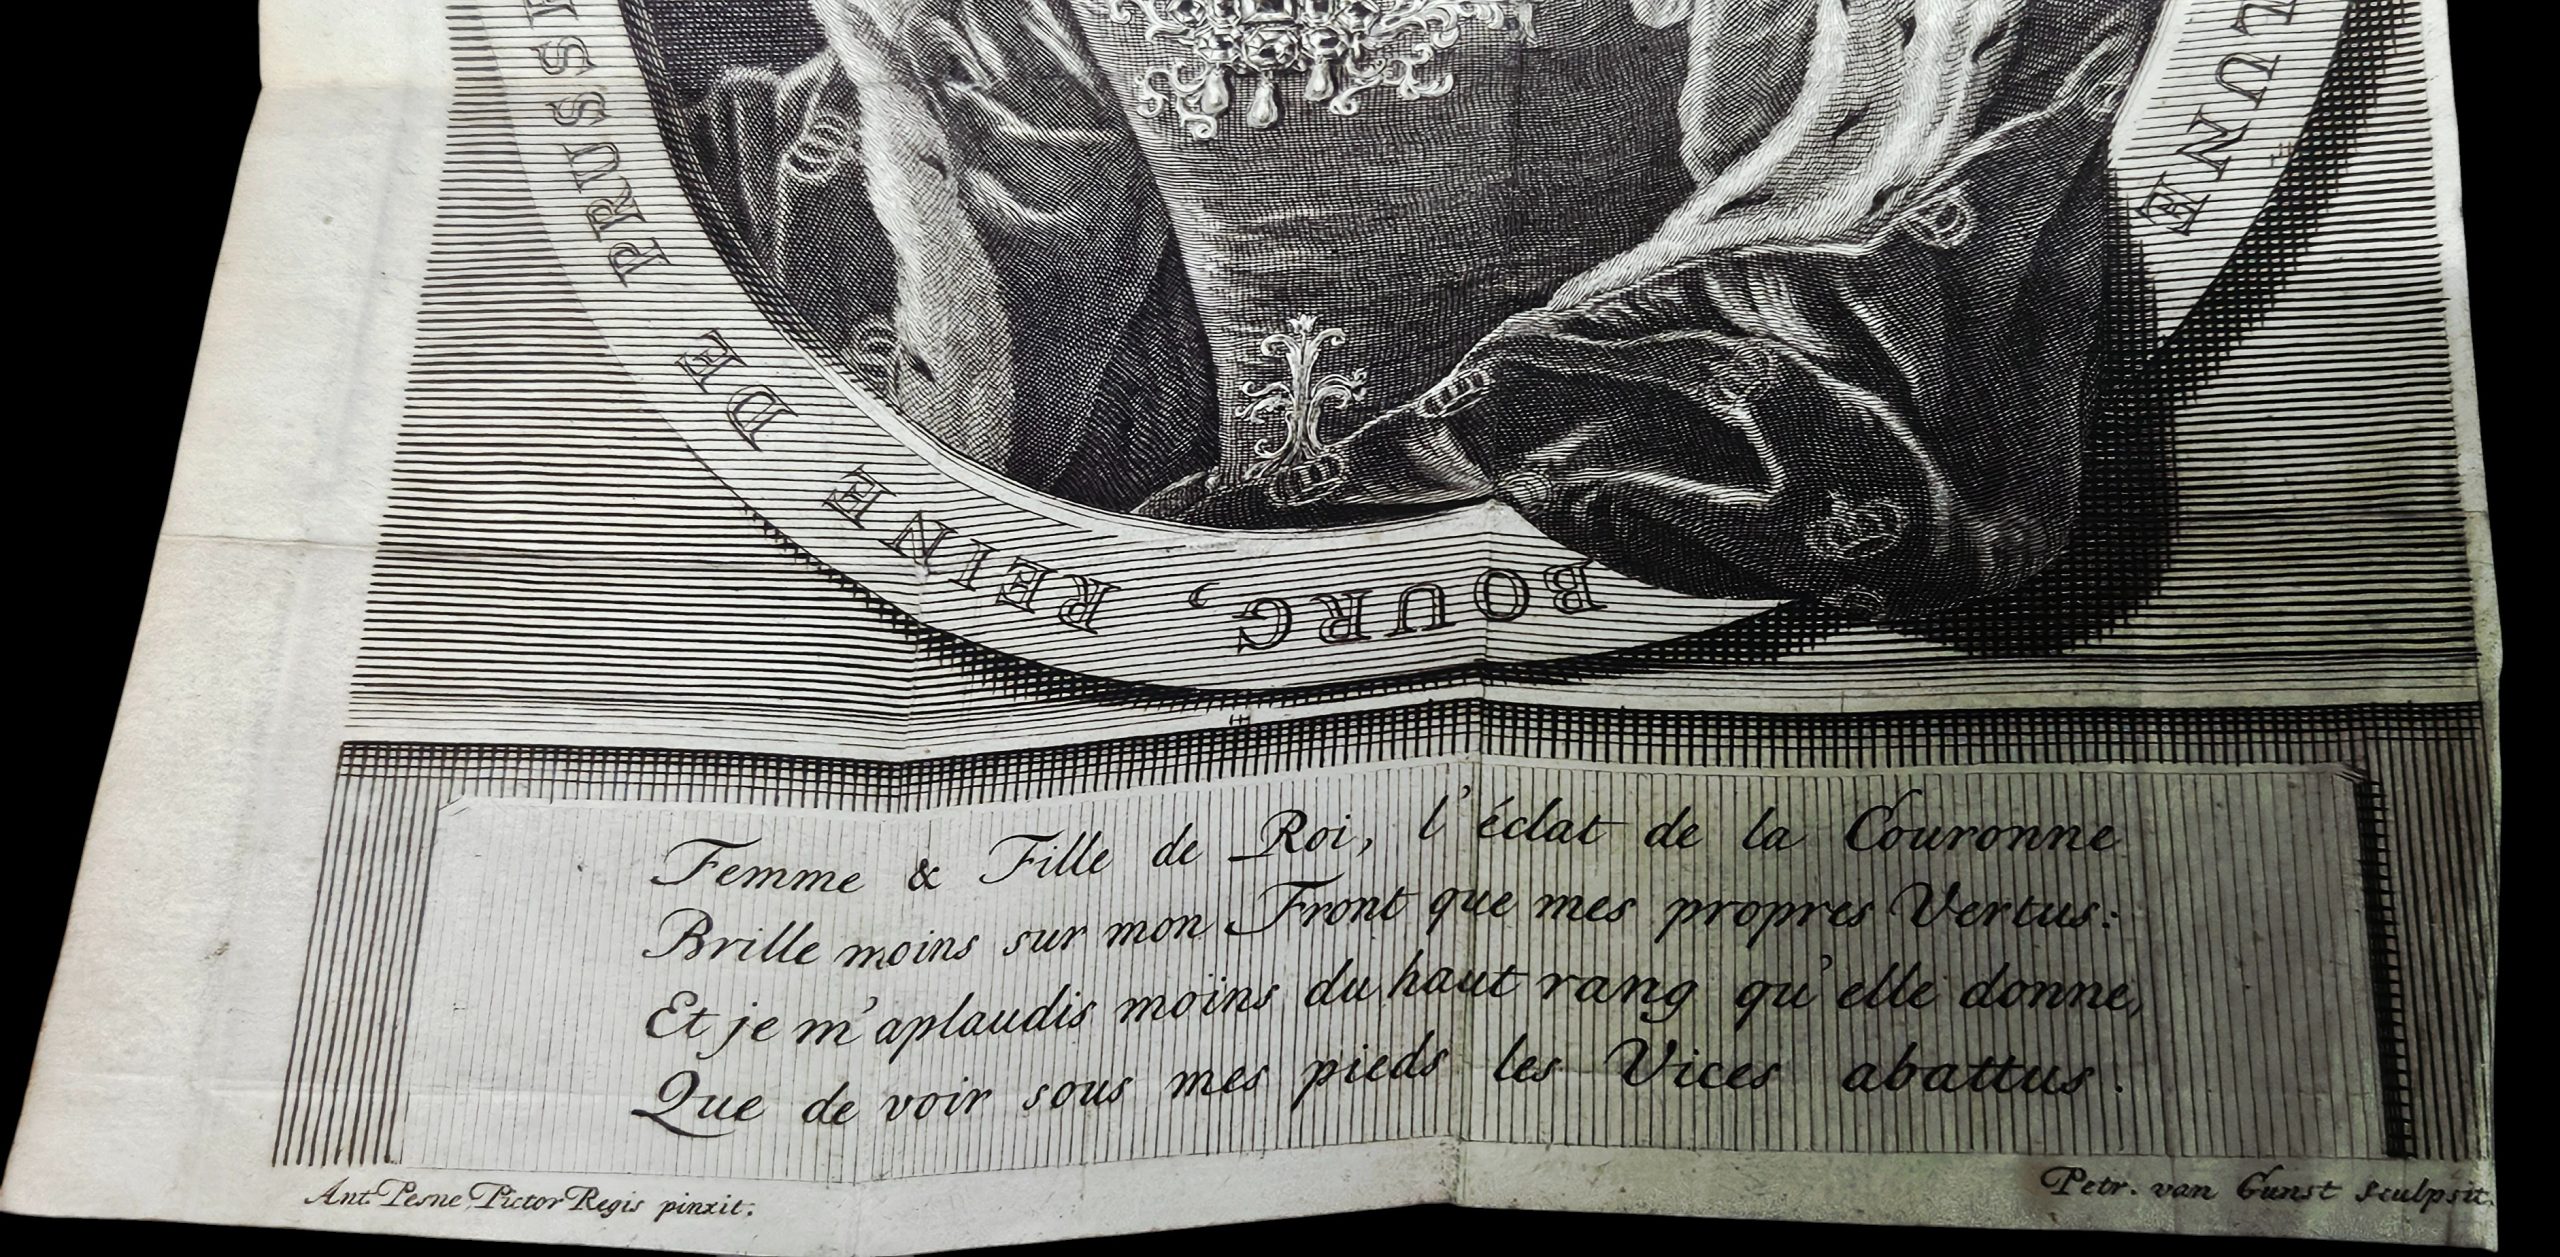 LUNE
BOURG, REINE DE PRUSSE
Femme & Fille de Roi, l'éclat de la Couronne
Brille moins sur mon Front que mes propres Vertus:
Et je m'aplaudis moins du haut rang qu'elle donne,
Que de voir sous mes pieds les Vices abattus.
Ant. Pesne Pictor Regis pinxit.
Petr. van Gunst sculpsit.